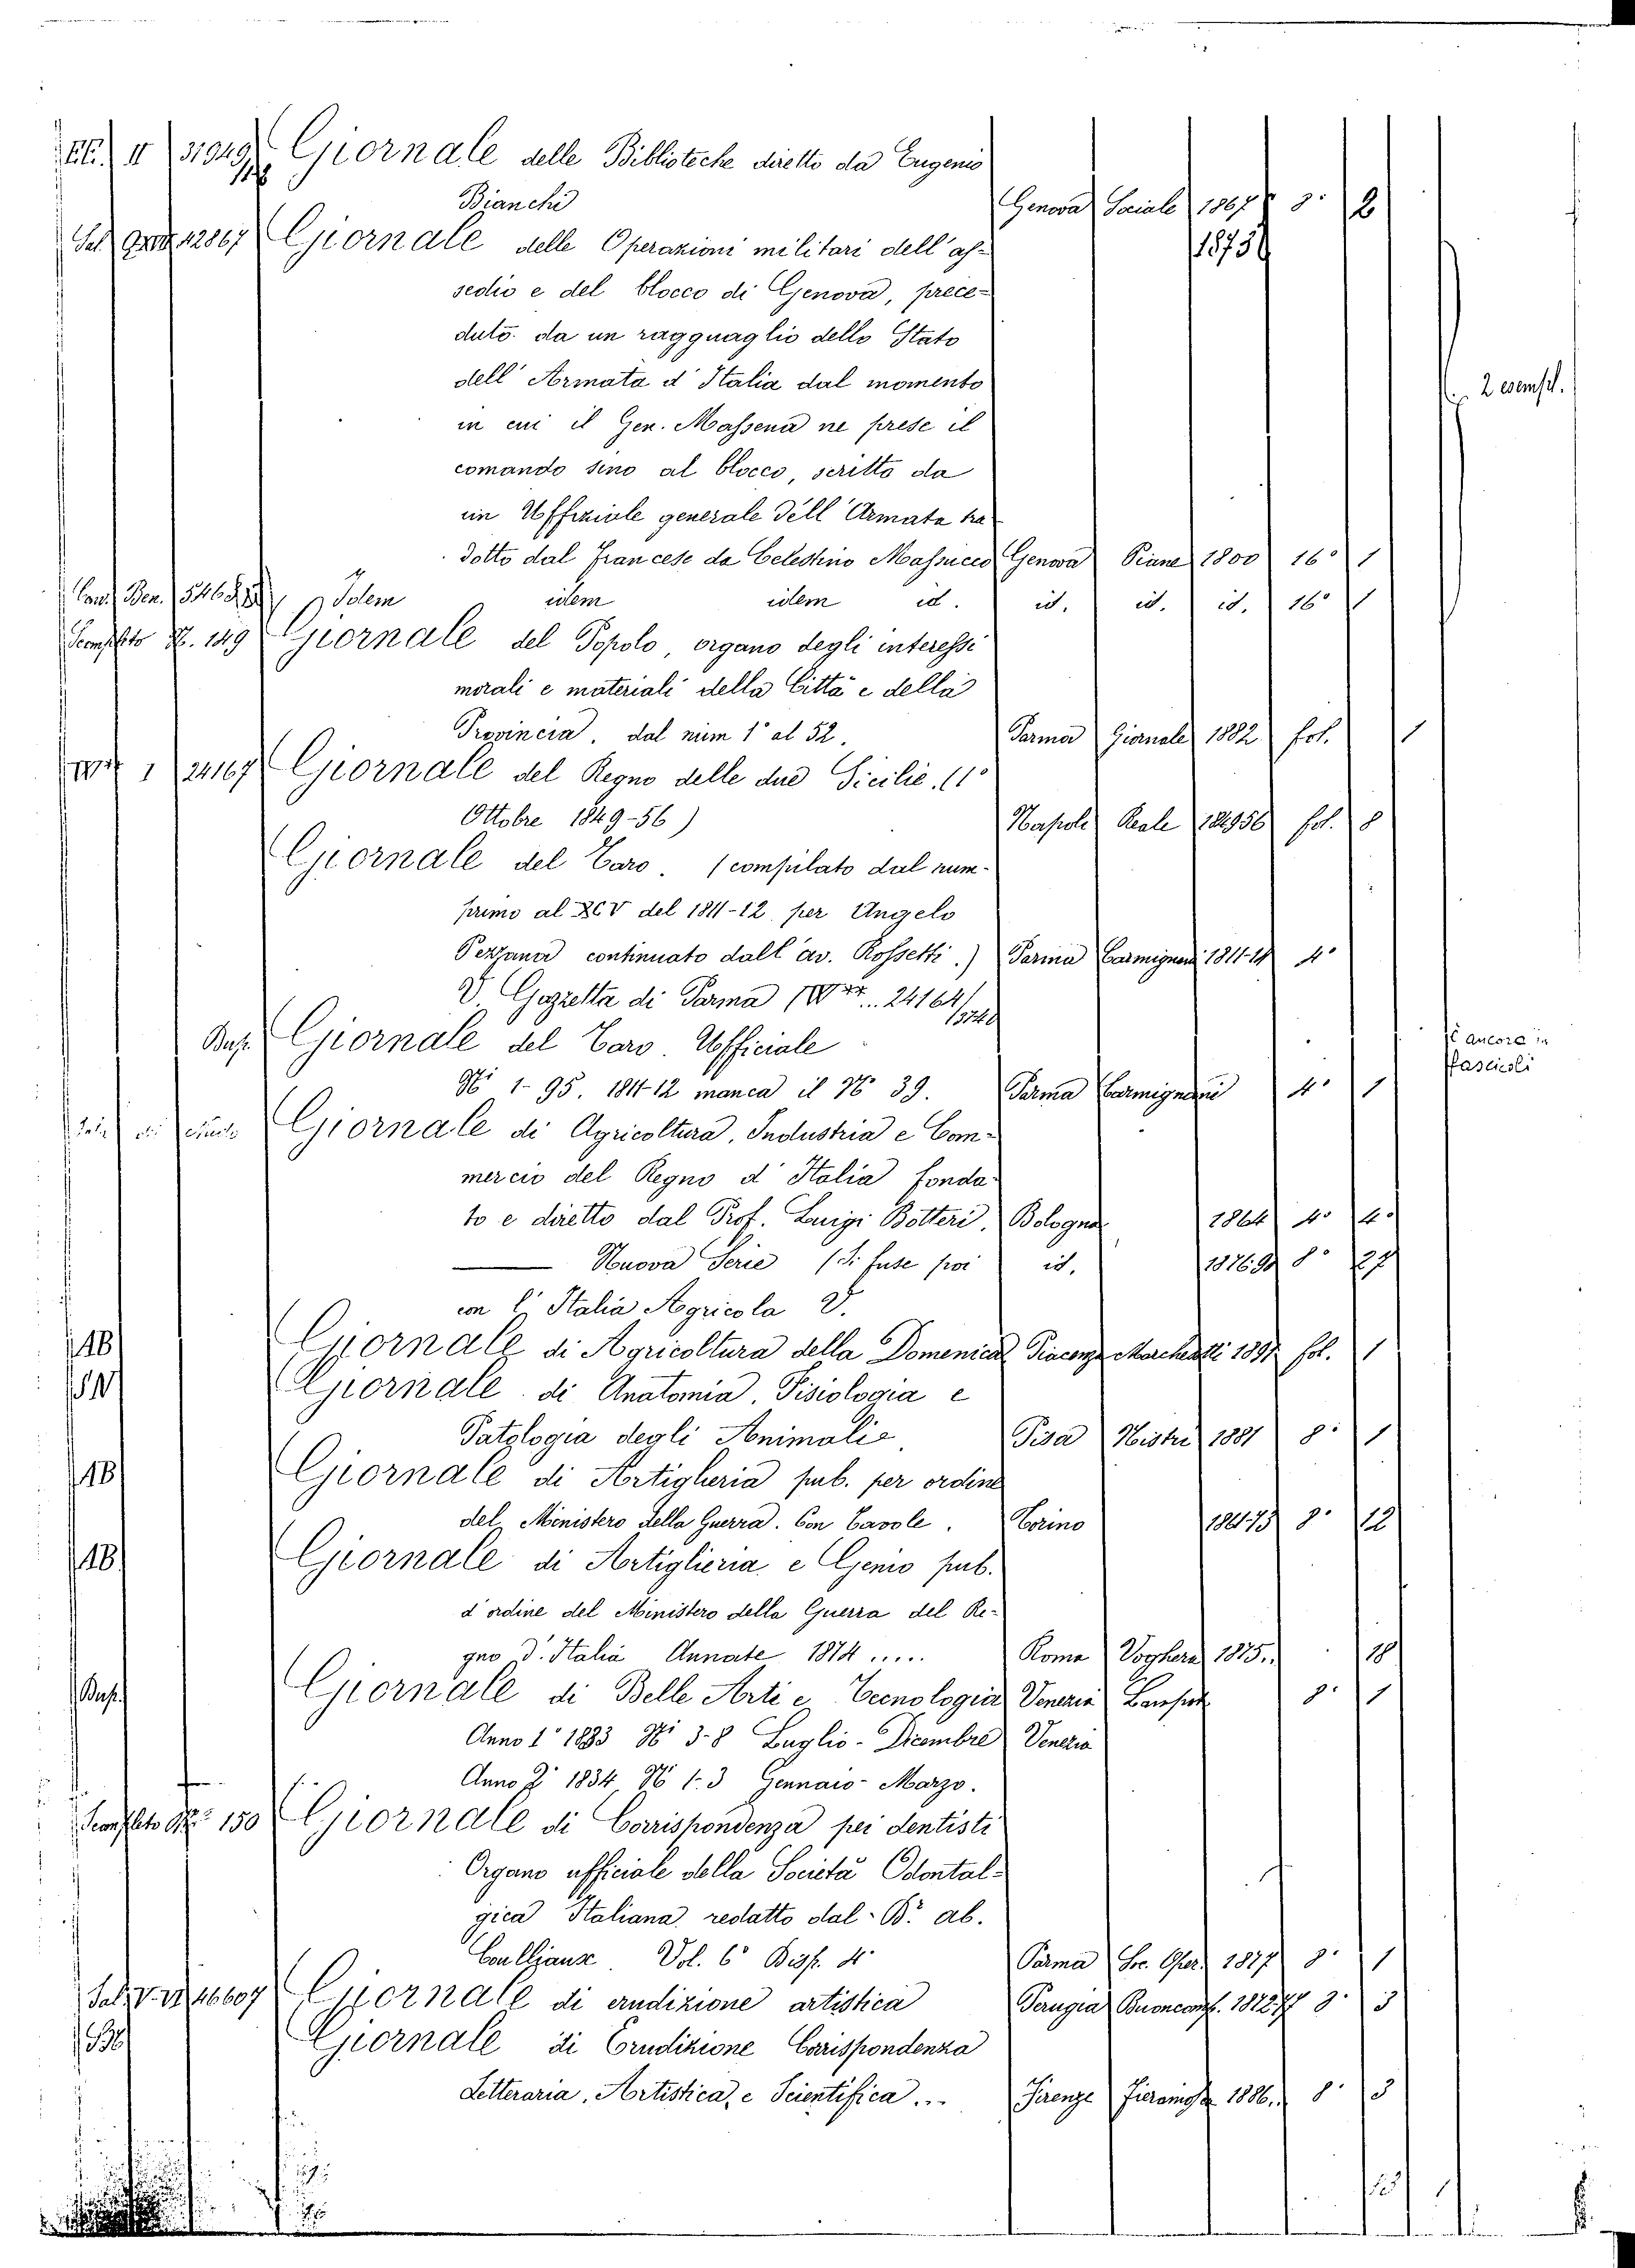 II 31949 Giornale delle Biblioteche diretto da Eugenio
Bianchi Genova Sociale 1867 8° 2
Sal. 12867 Giornale delle Operazioni militari dell'as= 1873
sedio e del blocco di Genova, prece=
duto da un ragguaglio dello Stato
dell'Armata d'Italia dal momento
in cui il Gen. Massena ne prese il
2 esempl.
comando sino al blocco, scritto da
un Uffiziale generale dell'Armata tra
dotto dal Francese da Celestino Massucco Genova Piane 1800 16° 1
Idem idem idem id. id. id. id. 16° 1
N. 149 Giornale del Popolo, organo degli interessi
morali e materiali della Città e della
Provincia, dal num 1° al 52. Parma Giornale 1882 fol. 1
1 24167 Giornale del Regno delle due Sicilie. (1°
Ottobre 1849-56) Napoli Reale 1849 56 fol. 8
Giornale del Taro. (compilato dal num.
primo al XCV del 1811-12 per Angelo
Pezzana continuato dall'av. Rossetti.) Parma Carmignani 1811-14 4°
V. Gazzetta di Parma 24164/
Bas. Giornale del Taro. Ufficiale
è ancora in
fascicoli
Ni 1-95. 1811-12 manca il N° 39. Parma Carmignani 4° 1
Giornale di Agricoltura, Industria e Com=
mercio del Regno d'Italia fonda=
to e diretto dal Prof. Luigi Botteri. Bologna 1864 4° 4
Nuova Serie (Si fuse poi id. 1876.90 8° 27
con l'Italia Agricola V.
Giornale di Agricoltura della Domenica Piacenza Marchesotti 1891 fol. 1
Giornale di Anatomia, Fisiologia e
Patologia degli Animali Pisa Nistri 1881 8° 1
Giornale di Artiglieria pub. per ordine
del Ministero della Guerra. Con Tavole. Torino 8° 12
Giornale di Artiglieria e Genio pub.
d'ordine del Ministero della Guerra del Re-
gno d'Italia Annate 1874 ..... Roma Voghera 1875.. 18
Bas. Giornale di Belle Arti e Tecnologia Venezia 8° 1
Anno 1° 1833 Ni 3-8 Luglio-Dicembre Venezia
Anno 2° 1834 N 1-3 Gennaio-Marzo.
150 Giornale di Corrispondenza pei dentisti
Organo ufficiale della Società Odontal-
gica Italiana redatto dal Dr. Ab.
Coulliaux Vol. 6° Disp. 4° Parma Soc. Oper. 1877 8° 1
46607 Giornale di erudizione artistica Perugia Buoncomp. 1872 77 8° 3
Giornale di Erudizione Corispondenza
Letteraria, Artistica, e Scientifica... Firenze 1886.. 8° 3